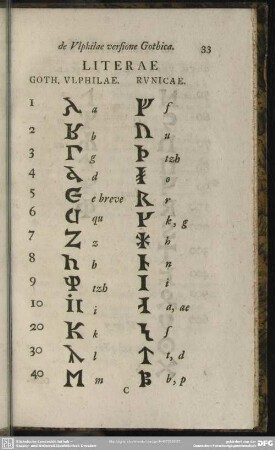 de Vlphilae versione Gothica. 33
LITERAE
GOTH. VLPHILAE. RVNICAE.
1 𐌰 a ᚠ f
2 𐌱 b ᚢ u
3 𐌲 g ᚦ tzh
4 𐌳 d ᚮ o
5 𐌴 e breve ᚱ r
6 𐌵 qu ᚴ k, g
7 𐌶 z ᚼ h
8 𐌷 h ᚿ n
9 𐌸 tzh ᛁ i
10 𐌹 i ᛆ a, ae
20 𐌺 k ᛋ ſ
30 𐌻 l ᛏ t, d
40 𐌼 m ᛒ b, p
C